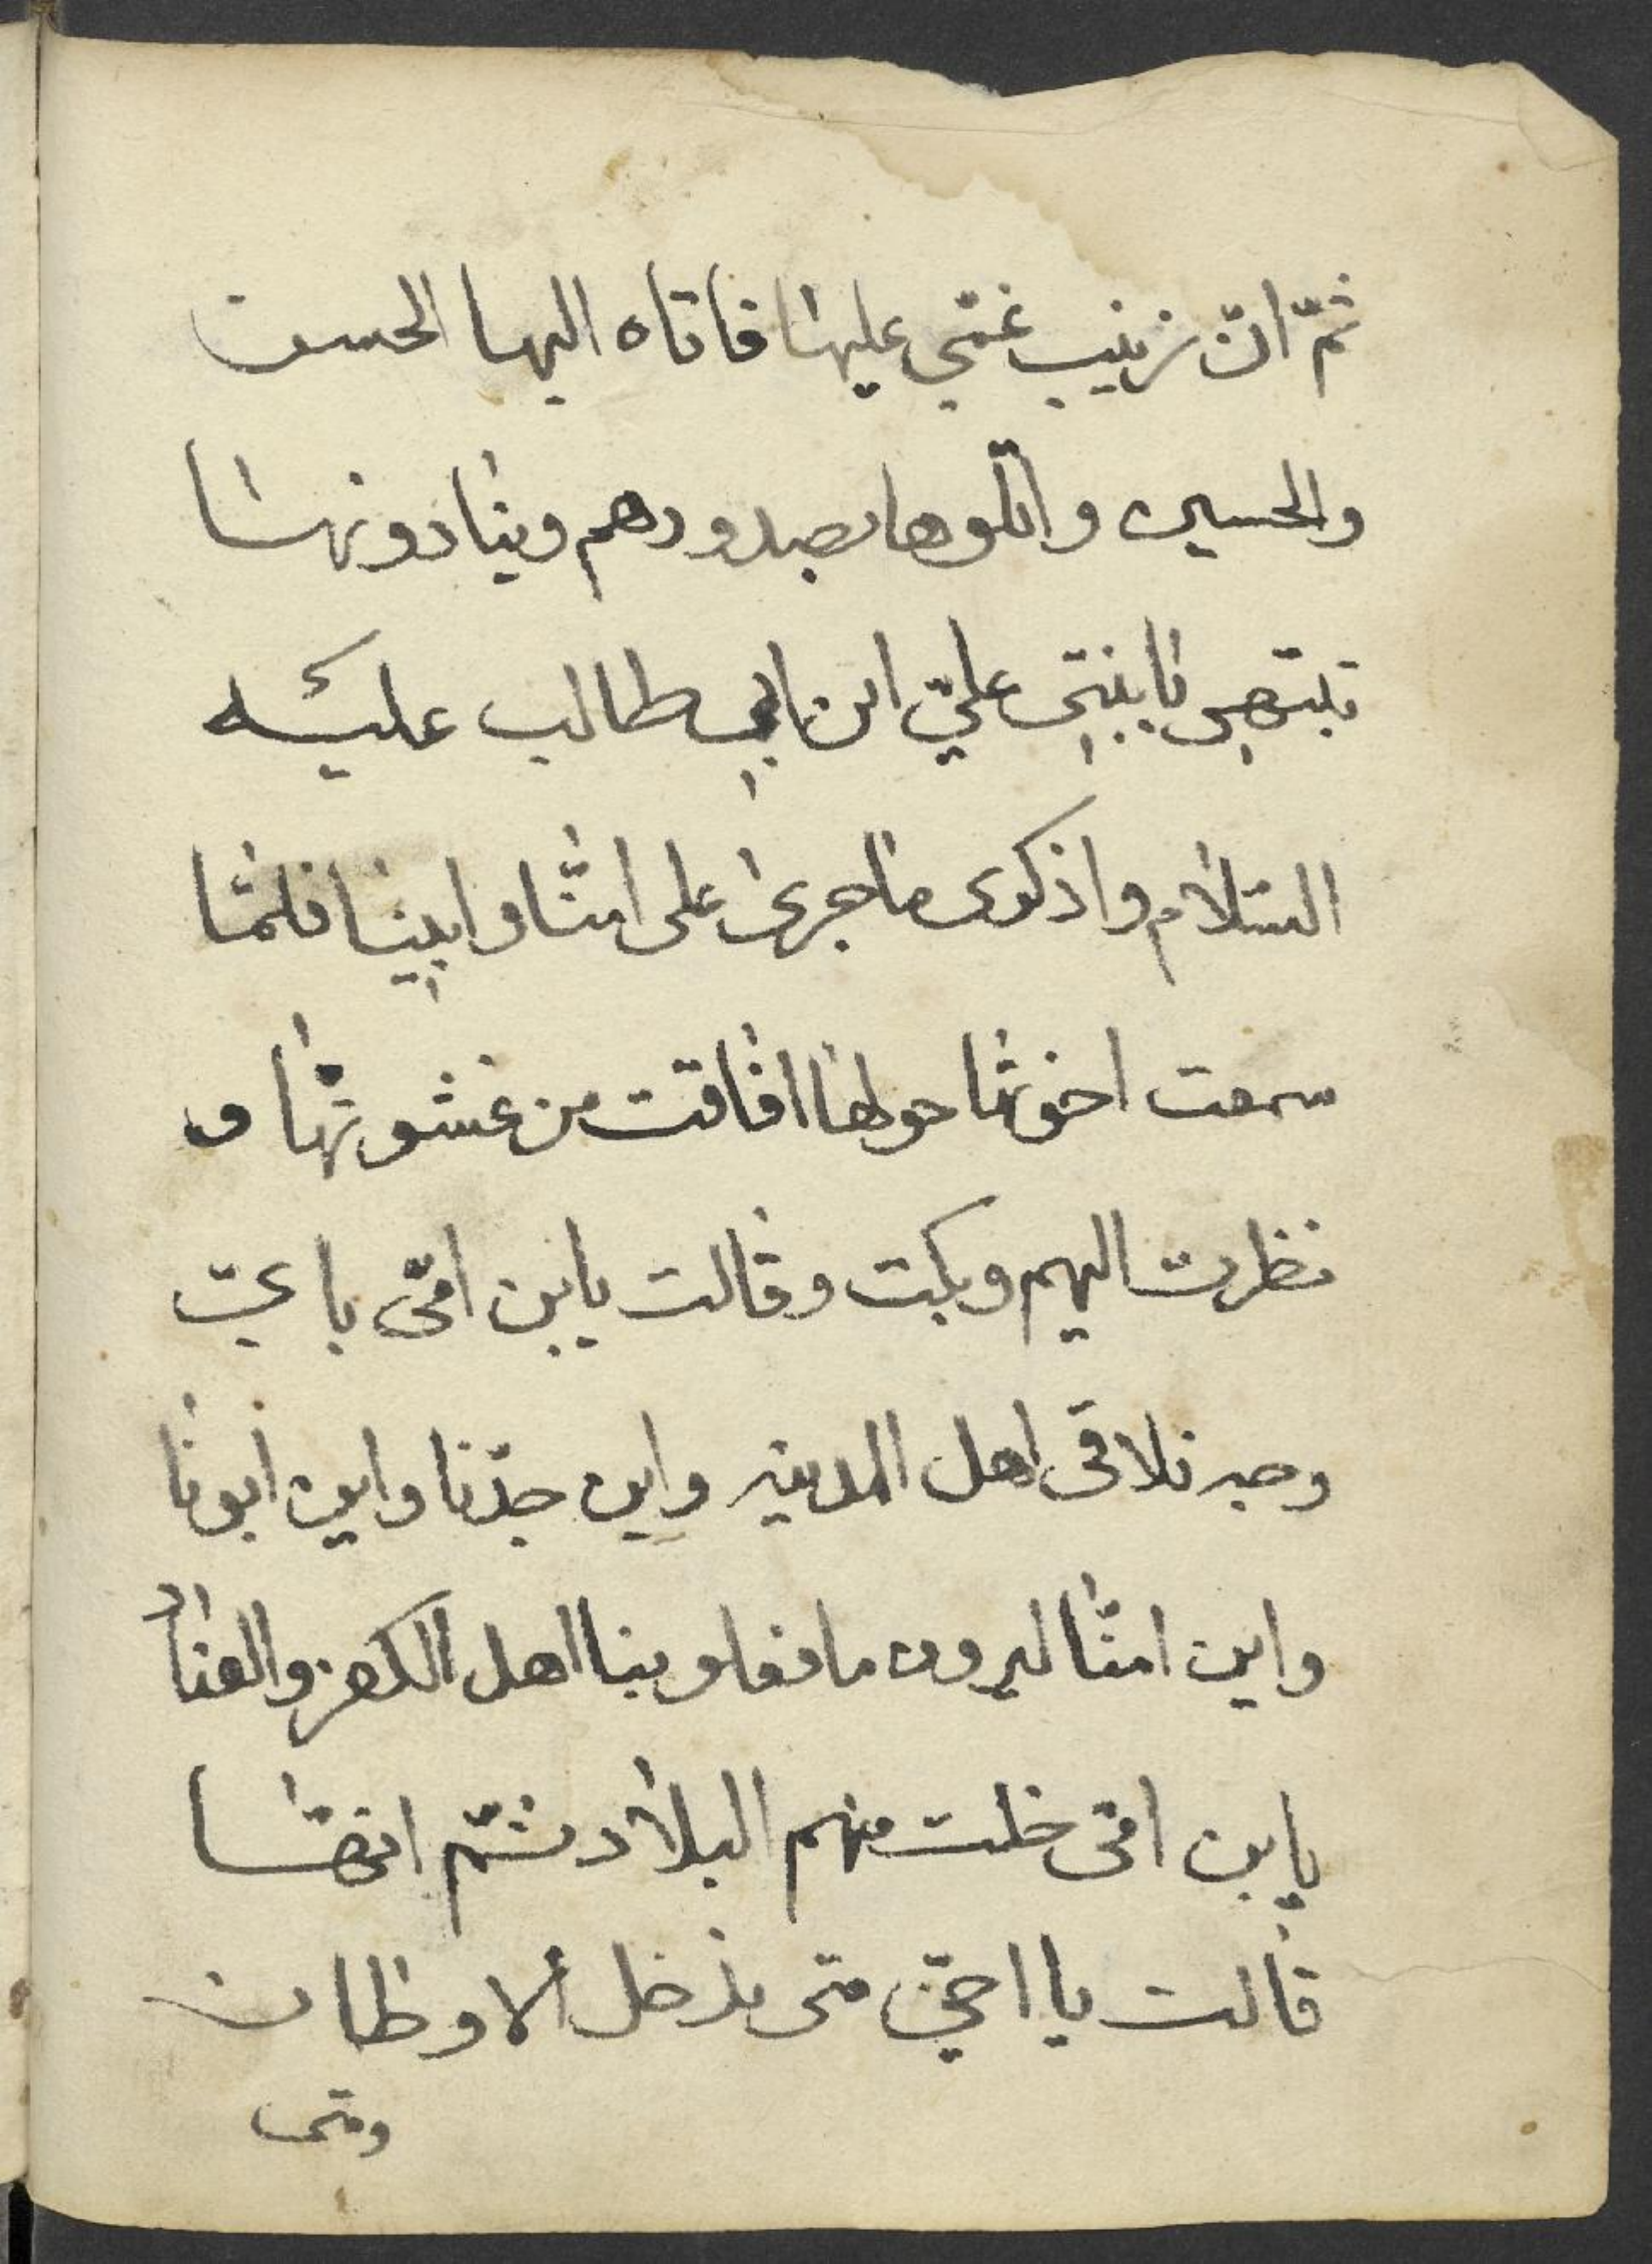 ثمّ انّ زينب غمّي عليها فاتاه اليها الحسن
والحسين واتكوها بصدورهم وينادونها
تنتهي يابنتي عليّ ابن ابي طالب عليه
السّلام واذكري ما جرى على امّنا وابينا فلمّا
سمعت اخوتها حولها افاقت من غشوتها و
نظرت اليهم وبكت وقالت يابن امّي باءيّ
وجه نلاقى اهل المدينه واين جدّنا واين ابونا
واين امّنا ليرون ما فعلو بنا اهل الكفر والعناد
يابن امّى خلت منهم البلاد ثمّ انّها
قالت يا اخيّ متى ندخل الاوطان
ومتى